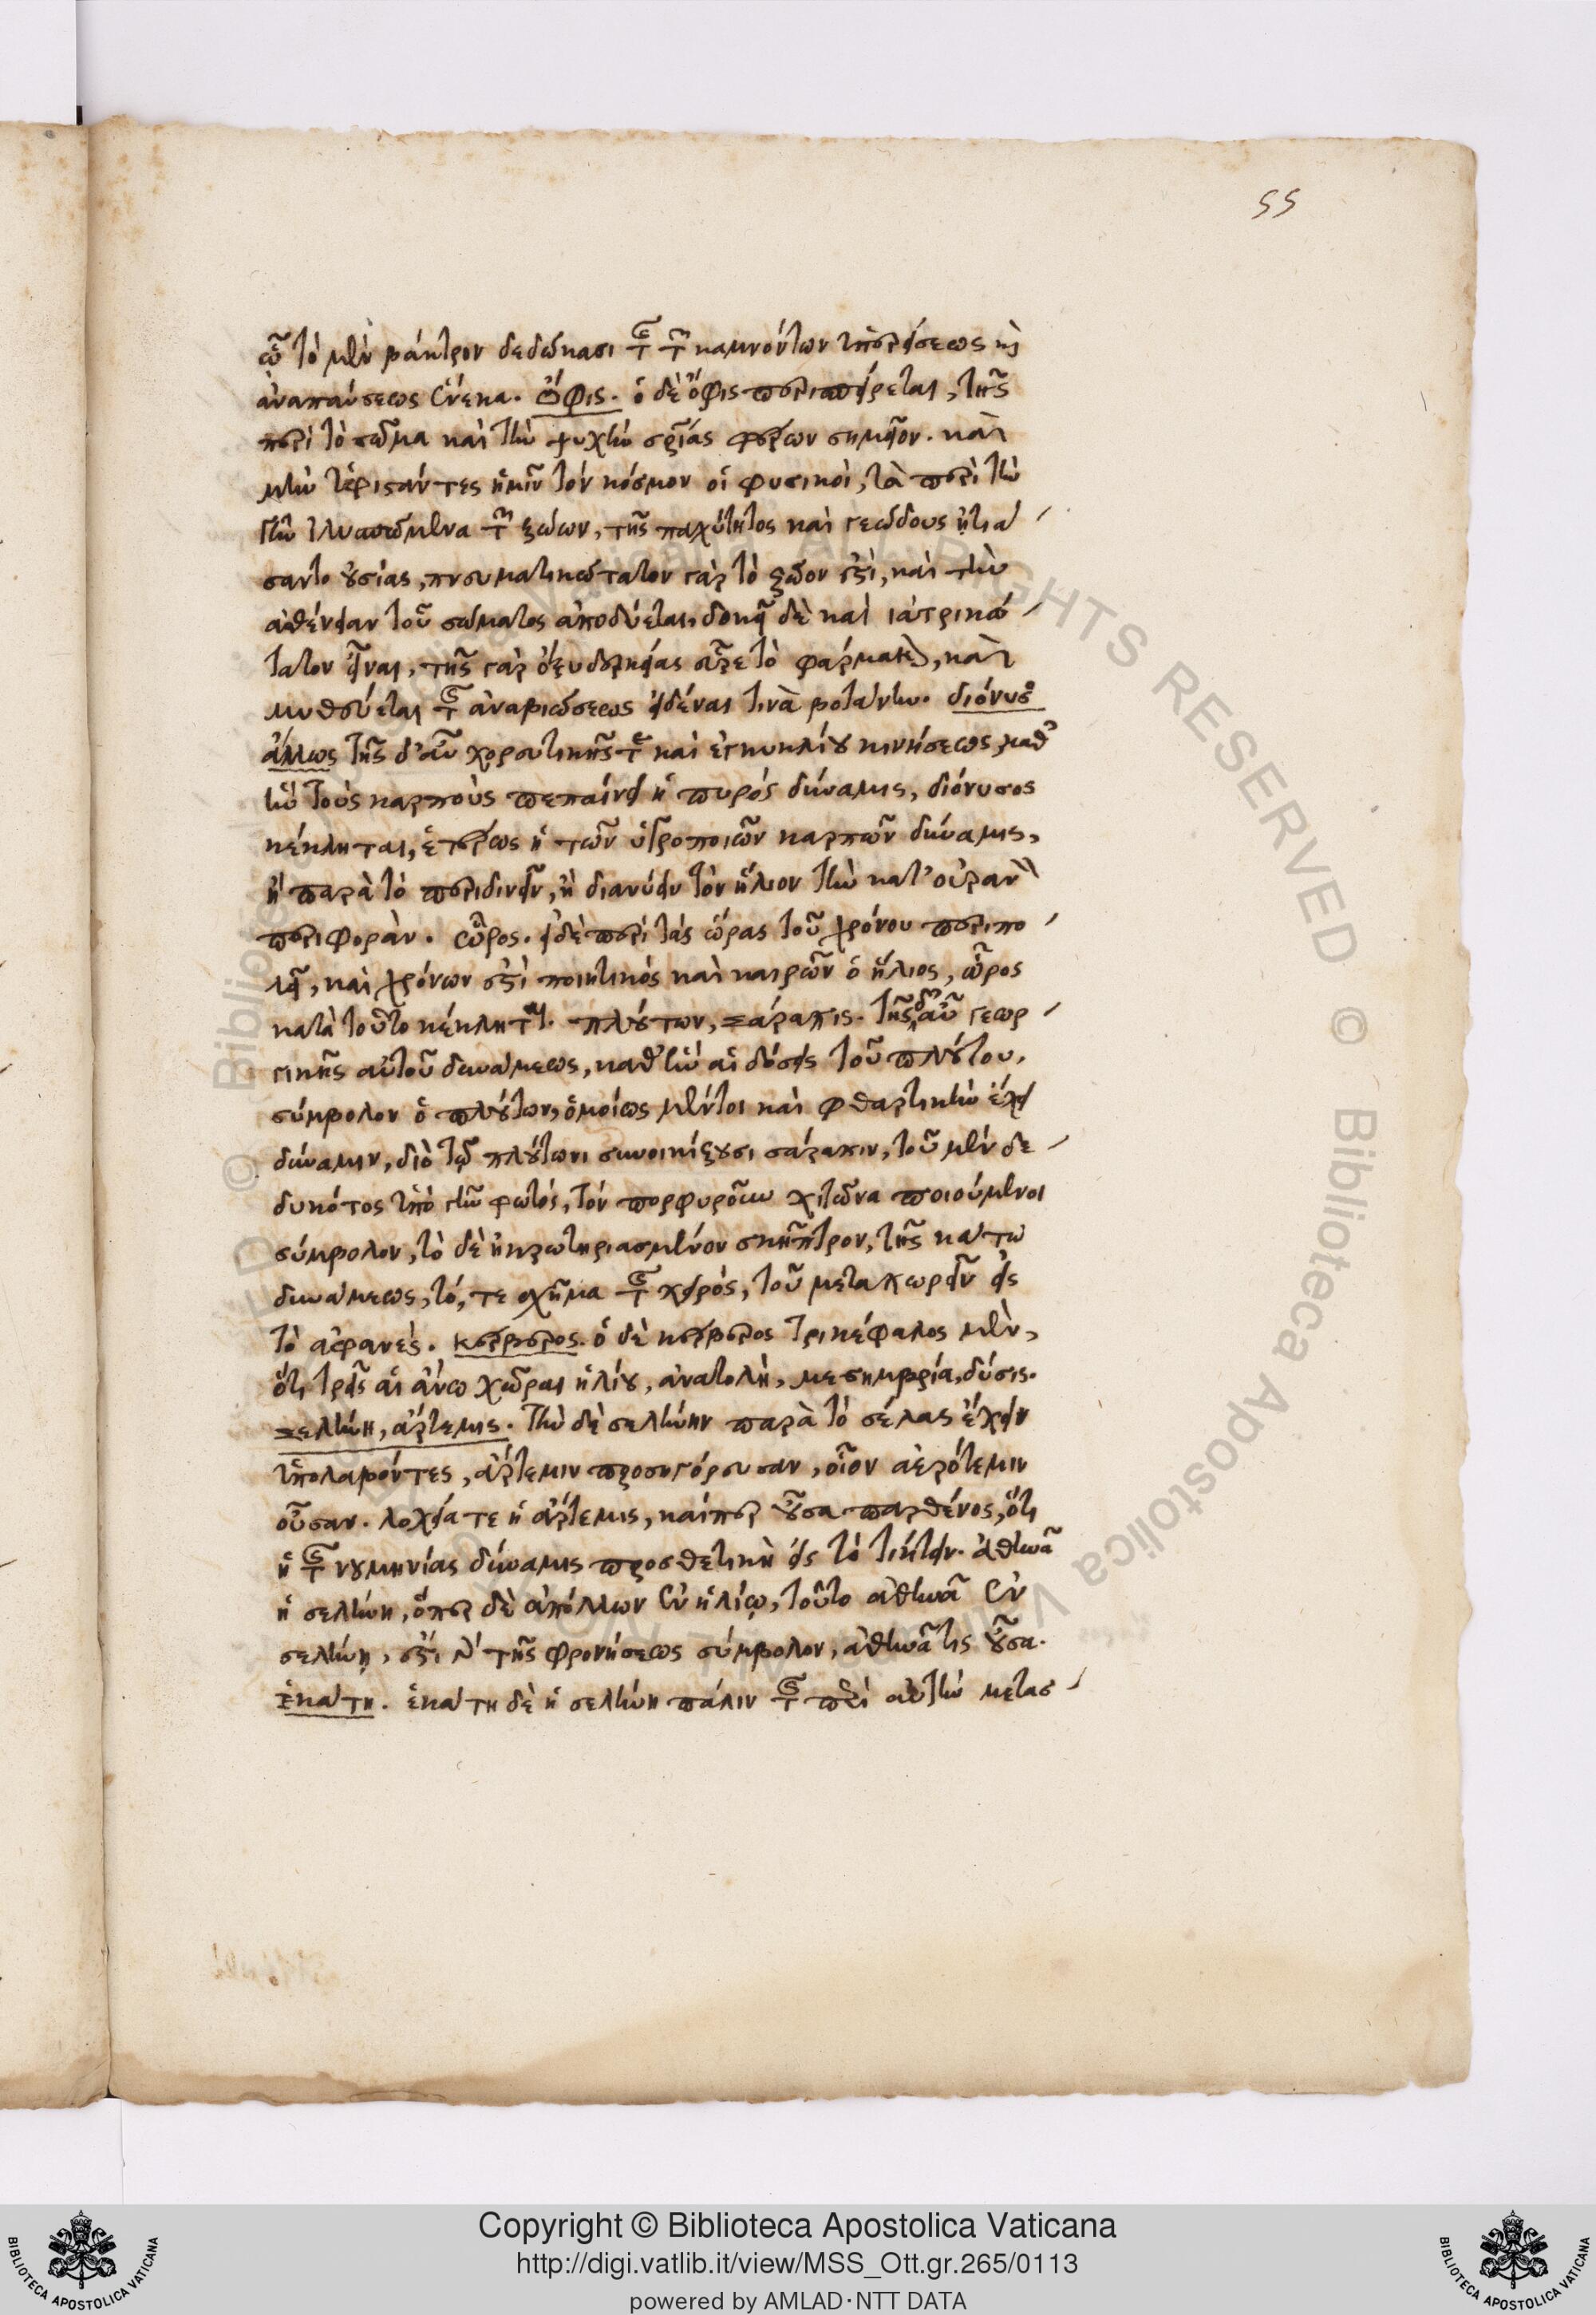 55
ᾧ τὸ μὲν βάκτρον δεδώκασι τῆς τῶν καμνόντων ὑπερείσεως καὶ
ἀναπαύσεως ἕνεκα. ὄφις. ὁ δὲ ὄφις περισπείρεται, τῆς
περὶ τὸ σῶμα καὶ τὴν ψυχὴν σωτηρίας φέρων σημεῖον. καὶ
μὴν ἱερισαντες ἡμῖν τὸν κόσμον οἱ φυσικοὶ, τὰ περὶ τὴν
γῆν ἰλυσπώμενα τῶν ζώων, τῆς παχύτητος καὶ γεώδους ᾐτιά
σαντο οὐσίας, πνευματικώτατον γὰρ τὸ ζῶον ἐστὶ, καὶ τὴν
ἀσθένειαν τοῦ σώματος ἀποδύεται. δοκεῖ δὲ καὶ ἰατρικώ
τατον εἶναι, τῆς γὰρ ὀξυδορκείας εὗρε τὸ φάρμακον, καὶ
μυθεύεται τῆς ἀναβιώσεως εἰδέναι τινὰ βοτάνην. διόνυσος
ἄλλως τῆς δ' αὖ χορευτικῆς τε καὶ ἐγκυκλίου κινήσεως, καθ'
ἣν τοὺς καρποὺς πεπαίνει ἡ πυρός δύναμις, διόνυσος
κέκληται, ἑτέρως ἡ τῶν ὑγροποιῶν καρπῶν δύναμις,
ἢ παρὰ τὸ περιδινεῖν, ἢ διανύειν τὸν ἥλιον τὴν κατ' οὐρανὸν
περιφοράν. ὧρος. ᾗ δὲ περὶ τὰς ὥρας τοῦ χρόνου περιπο
λεῖ, καὶ χρόνων ἐστὶ ποιητικός καὶ καιρῶν ὁ ἥλιος, ὧρος
κατὰ τοῦτο κέκληται. πλούτων, σάραπις. τῆς δ' αὖ γεωρ
γικῆς αὐτοῦ δυνάμεως, καθ' ἣν αἱ δόσεις τοῦ πλούτου,
σύμβολον ὁ πλούτων, ὁμοίως μέντοι καὶ φθαρτικὴν ἔχει
δύναμιν, διὸ τῷ πλούτωνι συνοικίζουσι σάραπιν, τοῦ μὲν δε
δυκότος ὑπὸ γῆν φωτός, τὸν πορφυροῦν χιτῶνα ποιούμενοι
σύμβολον, τὸ δὲ ἠκρωτηριασμένον σκῆπτρον, τῆς κάτω
δυνάμεως, τό, τε σχῆμα τῆς χειρός, τοῦ μεταχωρεῖν εἰς
τὸ ἀφανές. κέρβερος. ὁ δὲ κέρβερος τρικέφαλος μὲν,
ὅτι τρεῖς αἱ ἄνω χῶραι ἡλίου, ἀνατολὴ, μεσημβρία, δύσις.
σελήνη, ἄρτεμις. τὴν δὲ σελήνην παρὰ τὸ σέλας ἔχειν
ὑπολαβόντες, ἄρτεμιν προσηγόρευσαν, οἷον ἀερότεμιν
οὖσαν. λοχεία τε ἡ ἄρτεμις, καίπερ οὖσα παρθένος, ὅτι
ἡ τῆς νουμηνίας δύναμις προσθετικὴ εἰς τὸ τίκτειν. ἀθηνᾶ
ἡ σελήνη, ὅπερ δὲ ἀπόλλων ἐν ἡλίῳ, τοῦτο ἀθηνᾶ ἐν
σελήνῃ, ἐστὶ γὰρ τῆς φρονήσεως σύμβολον, ἀθηνᾶ τις οὖσα.
ἑκάτη. ἑκάτη δὲ ἡ σελήνη πάλιν τῆς περὶ αὐτὴν μετασ
Copyright © Biblioteca Apostolica Vaticana
http://digi.vatlib.it/view/MSS_Ott.gr.265/0113
powered by AMLAD·NTT DATA